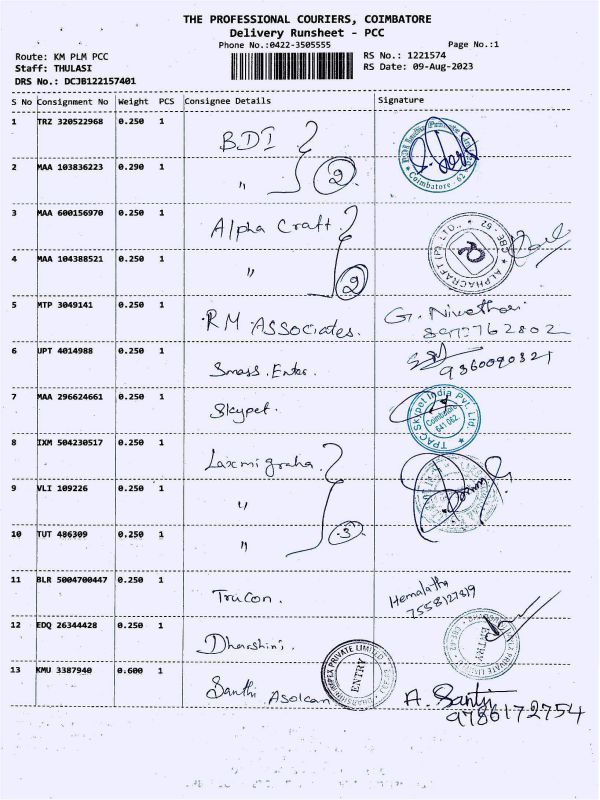 THE PROFESSIONAL COURIERS, COIMBATORE
Delivery Runsheet - PCC
Phone No.:0422-3505555
Page No.:1
Route: KM PLM PCC
Staff: THULASI
DRS No.: DCJB122157401
RS No.: 1221574
RS Date: 09-Aug-2023
S No Consignment No Weight PCS Consignee Details Signature
1 TRZ 320522968 0.250 1 BDI
Coimbatore - 62
2 MAA 103836223 0.290 1 " 2
3 MAA 600156970 0.250 1 Alpha Craft
ALPHACRAFT (P) LTD., CBE - 62
4 MAA 104388521 0.250 1 " 2
5 MTP 3049141 0.250 1 RM Associates. G. Nivethai
6 UPT 4014988 0.250 1 Smass. Enter. 9360090321
7 MAA 296624661 0.250 1 Skypet.
TPAC Skypet India Pvt. Ltd.
Coimbatore
641 062
8 IXM 504230517 0.250 1 Laxmi graha.
9 VLI 109226 0.250 1 "
10 TUT 486309 0.250 1 " 3
11 BLR 5004700447 0.250 1 Trucon. Hemalatha
7558127819
12 EDQ 26344428 0.250 1 Dharshini.
PRIVATE LIMITED
ENTRY
DHARSHINI IMPEX PRIVATE LIMITED
ENTRY
13 KMU 3387940 0.600 1 Santhi Asolcan A. Santhi
9786172754